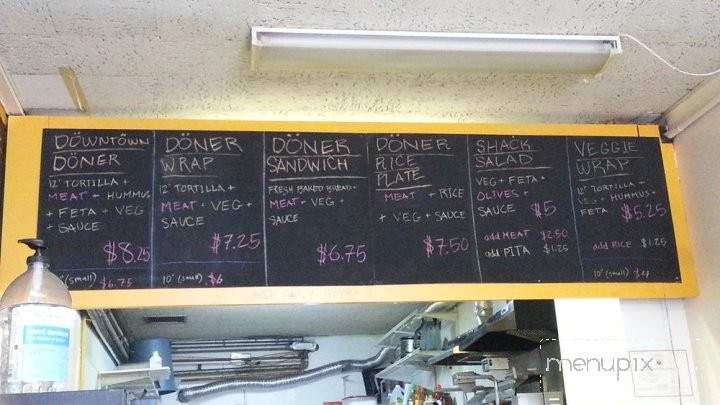 DÖWNTÖWN
DÖNER
12" TORTILLA +
MEAT + HUMMUS
+ FETA + VEG
+ SAUCE
$8.25
(small) $6.75
DÖNER
WRAP
12" TORTILLA +
MEAT + VEG +
SAUCE
$7.25
10" (small) $6
DÖNER
SANDWICH
FRESH BAKED BREAD +
MEAT + VEG +
SAUCE
$6.75
DÖNER
RICE
PLATE
MEAT + RICE
+ VEG + SAUCE
$7.50
SHACK
SALAD
VEG + FETA +
OLIVES +
SAUCE $5
add MEAT $2.50
add PITA $1.25
VEGGIE
WRAP
12" TORTILLA +
VEG + HUMMUS +
FETA $5.25
add RICE $1.25
10" (small) $4
menupix